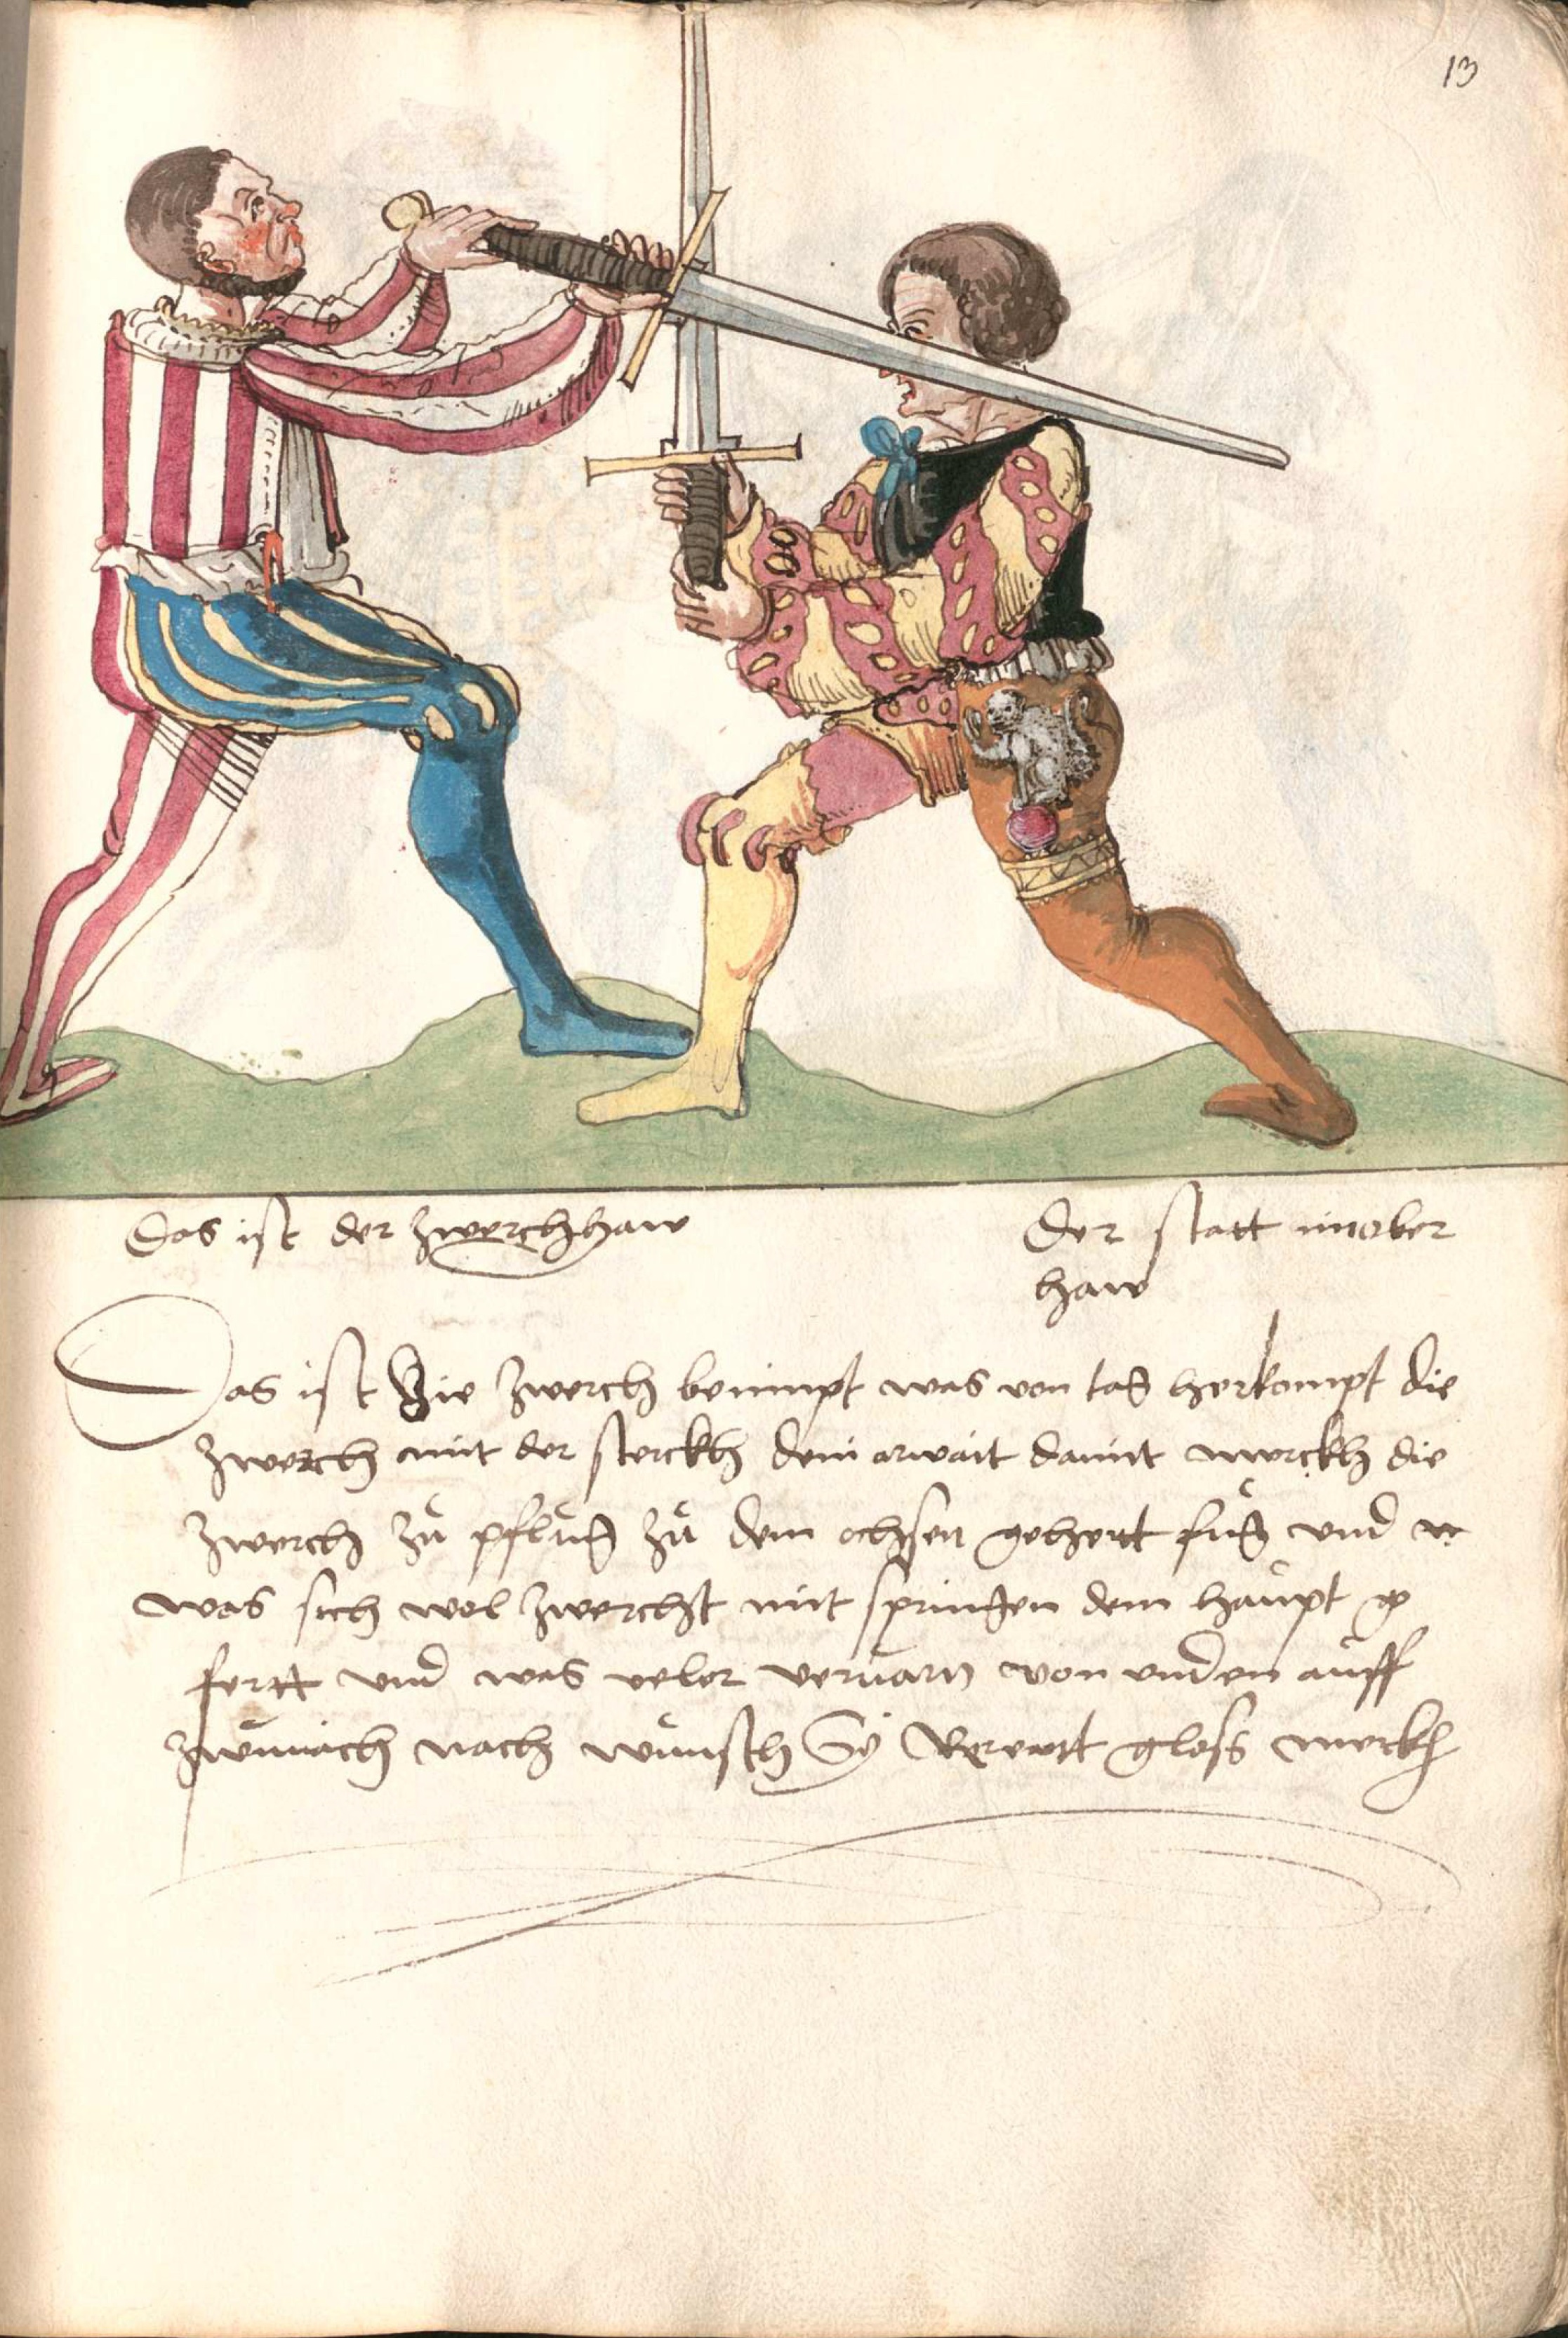 13
Das ist der zwerchhaw
Der statt im ober
haw
Das ist die zwerch benimpt was von tag her kompt die
zwerch mit der sterckh dein arwait damit merckh die
zwerch zu pflug zu dem ochsen gehertt fug und
was sich wol zwercht mit springen dem haupt ge
fertt und was veler veruarn von unden auff
nach wunsch Sy gloss merckh